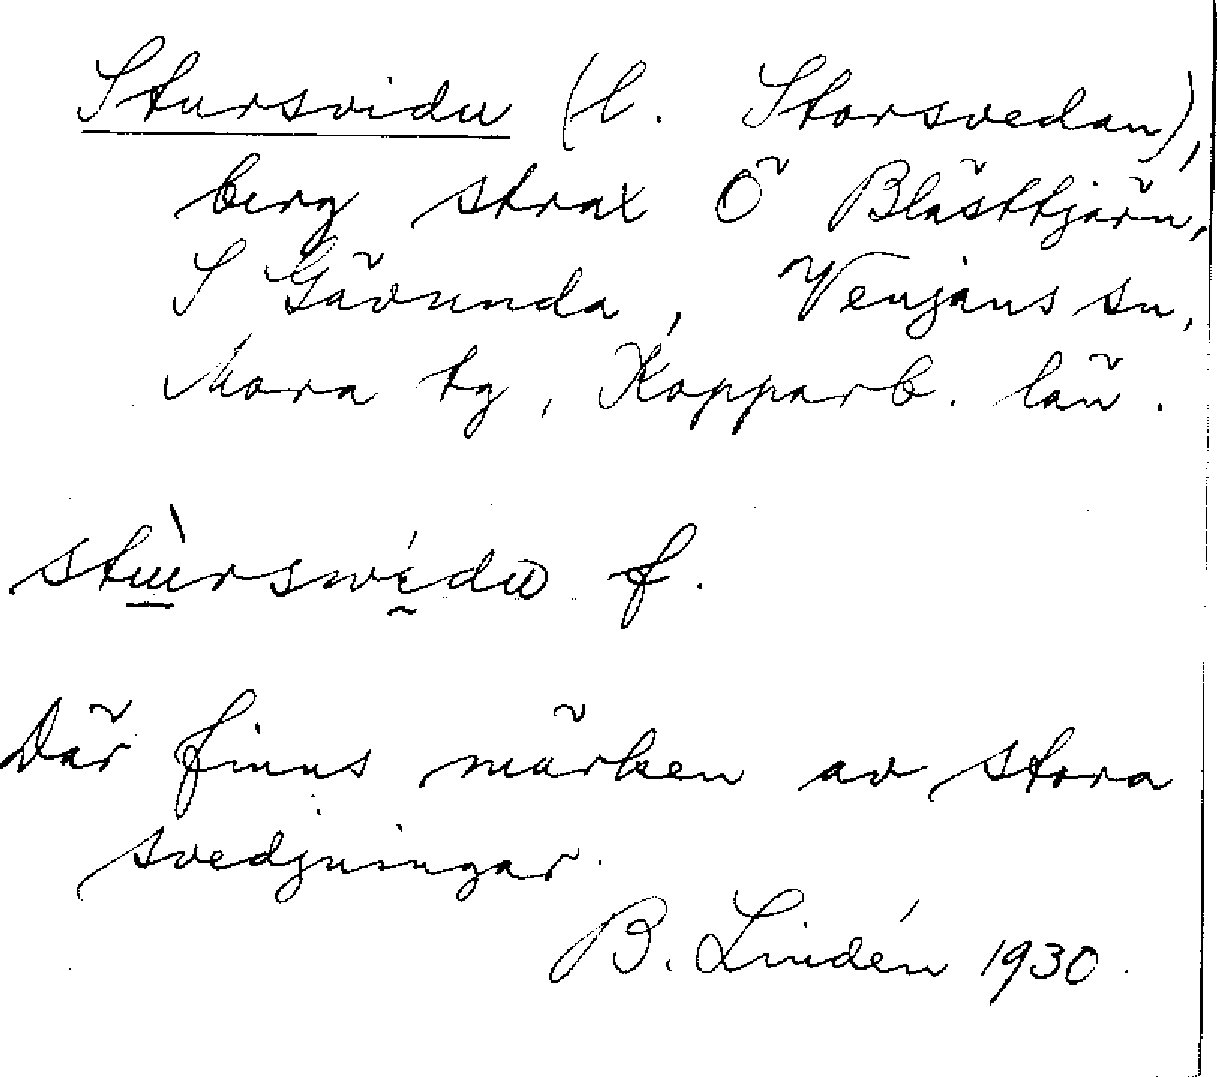 Stursvidu (l. Storsvedan),
berg strax Ö Blästtjärn,
S Gävunda, Venjans sn,
Mora tg, Kopparb. län.
f.
Där finns märken av stora
svedjningar.
B. Lindén 1930.